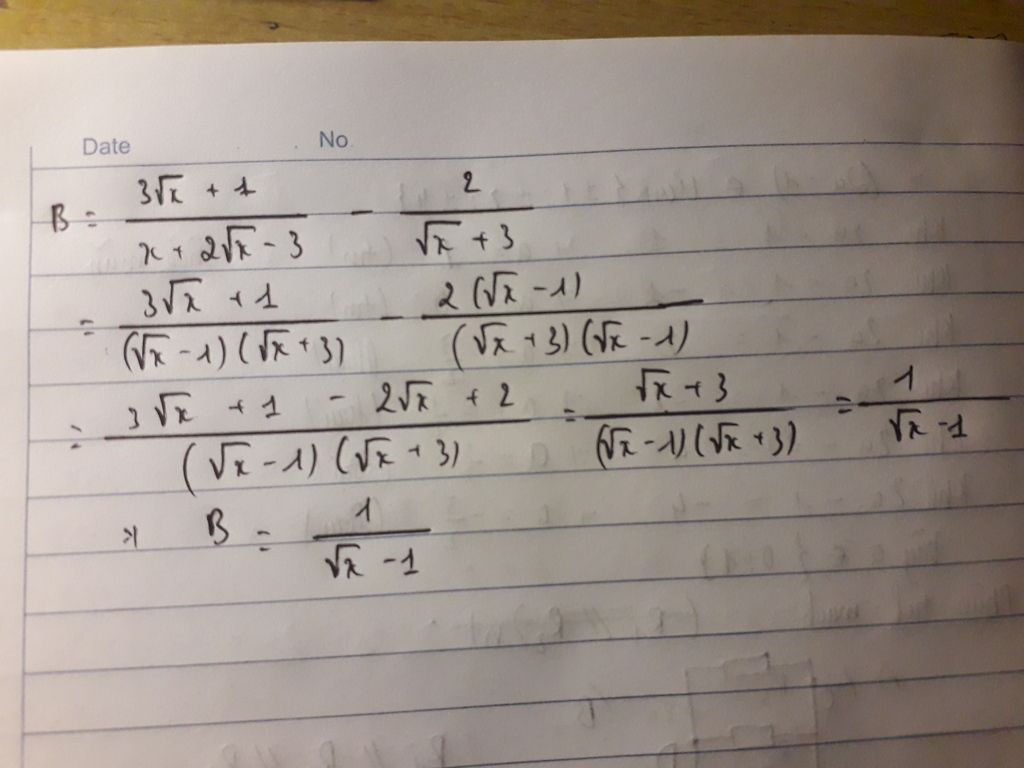 Date No
B = (3√x + 1)/(x + 2√x - 3) - 2/(√x + 3)
= (3√x + 1)/((√x - 1)(√x + 3)) - 2(√x - 1)/((√x + 3)(√x - 1))
= (3√x + 1 - 2√x + 2)/((√x - 1)(√x + 3)) = (√x + 3)/((√x - 1)(√x + 3)) = 1/(√x - 1)
B = 1/(√x - 1)